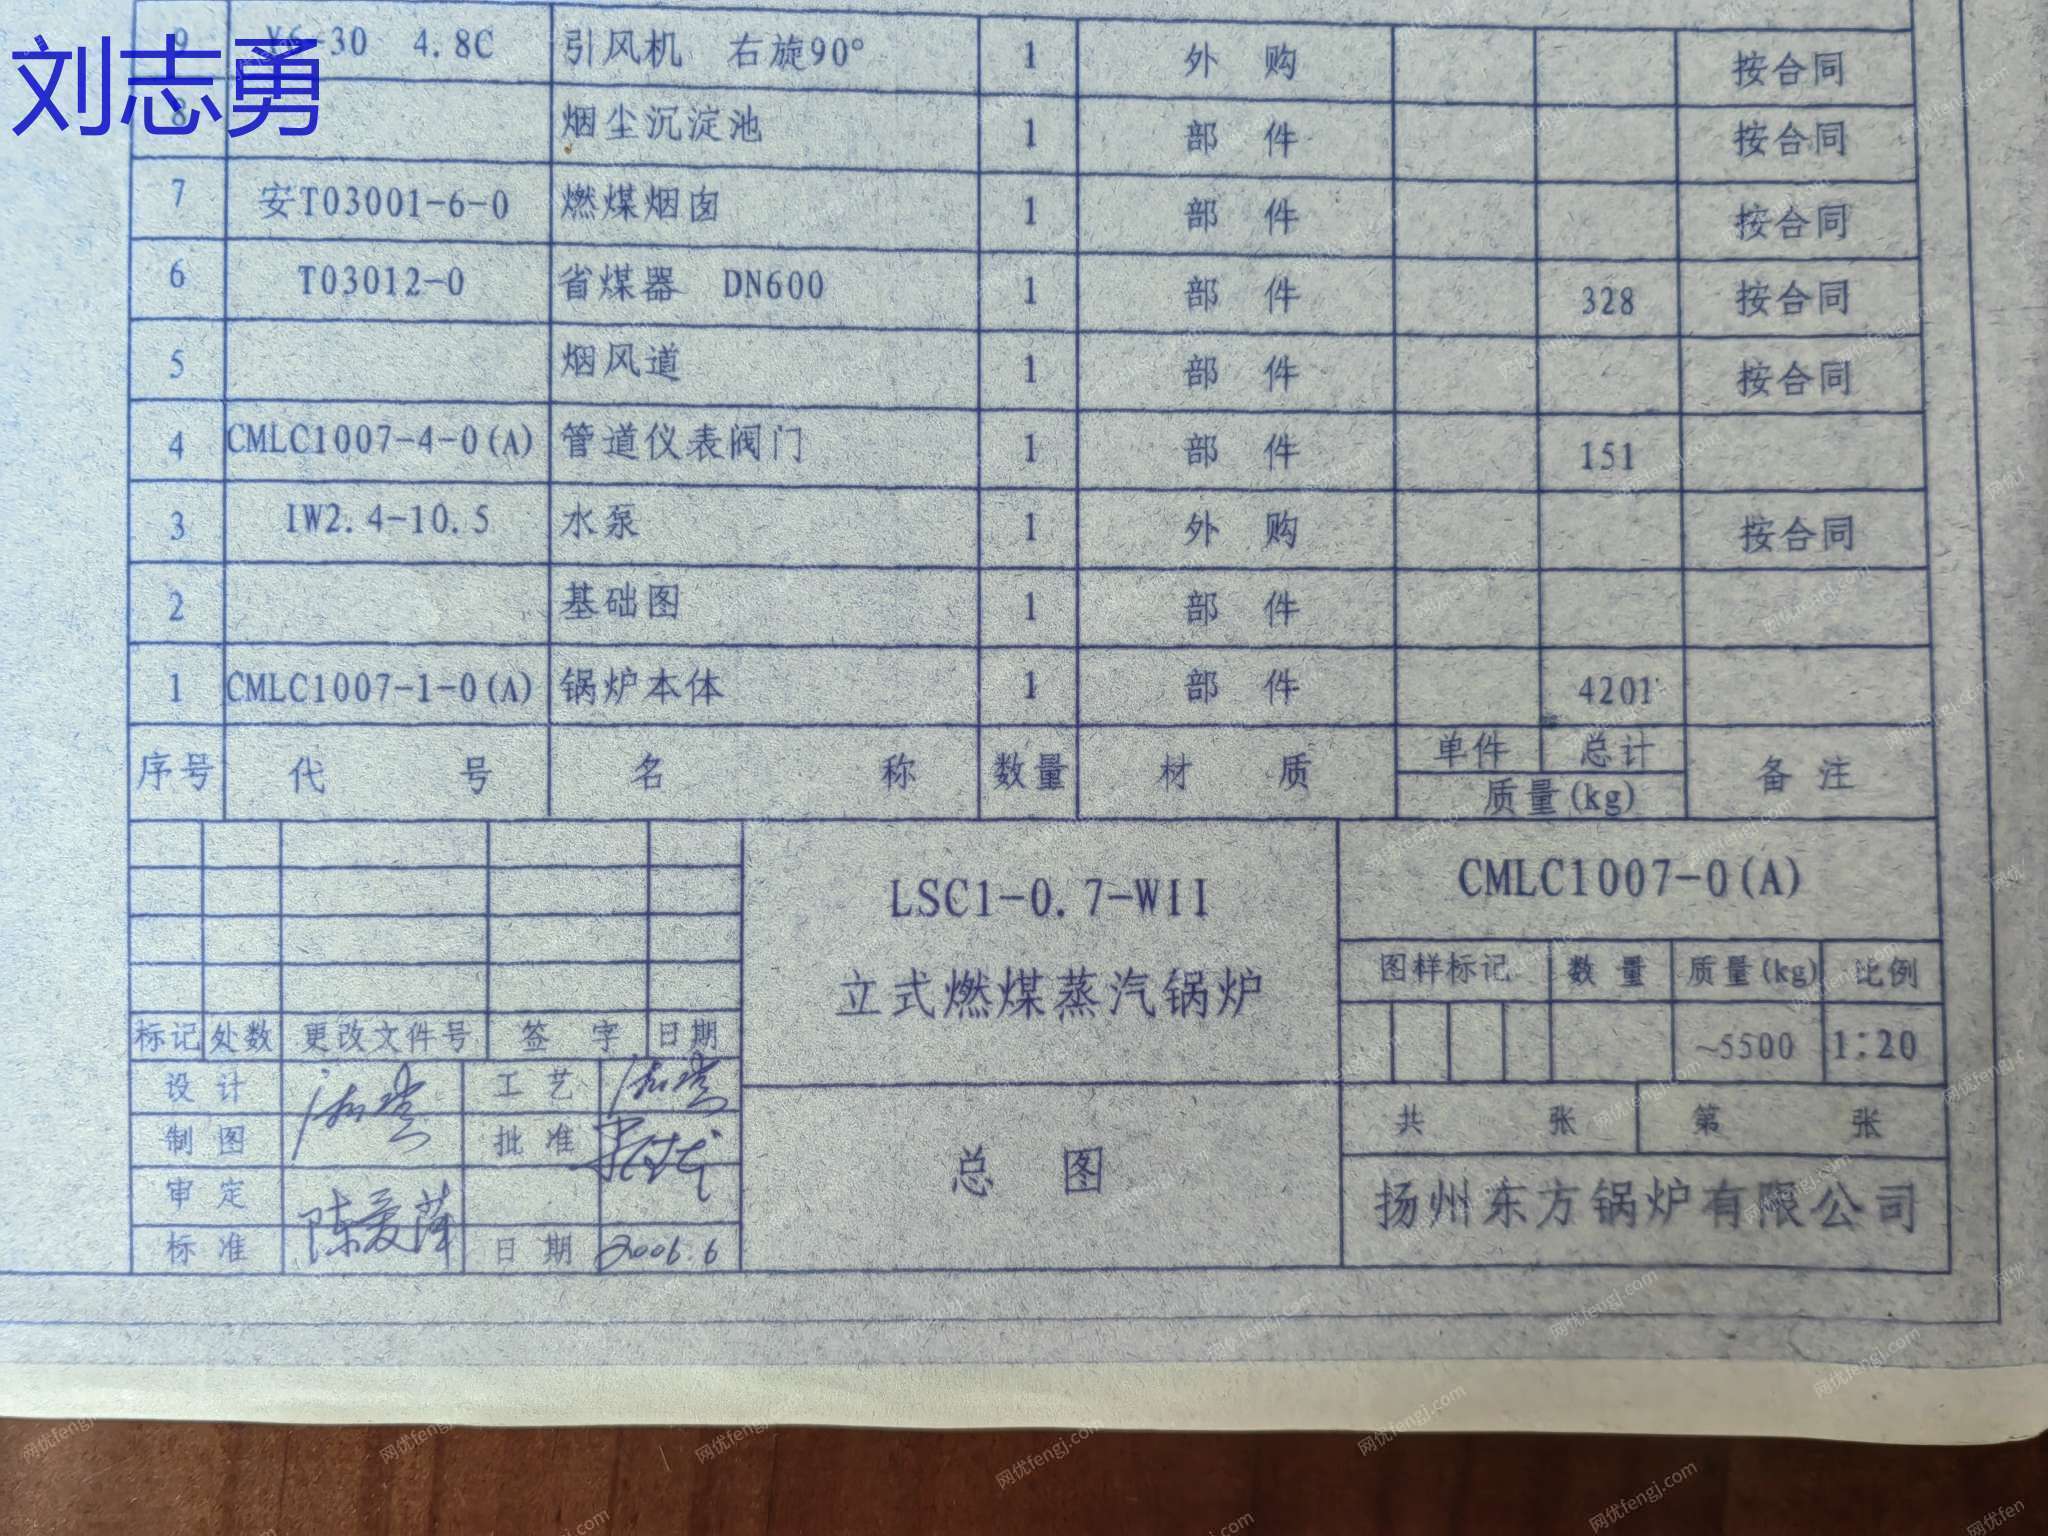 刘志勇
9 Y6-30 4.8C 引风机 右旋90° 1 外 购 按合同
8 烟尘沉淀池 1 部 件 按合同
7 安T03001-6-0 燃煤烟囱 1 部 件 按合同
6 T03012-0 省煤器 DN600 1 部 件 328 按合同
5 烟风道 1 部 件 按合同
4 CMLC1007-4-0(A) 管道仪表阀门 1 部 件 151
3 IW2.4-10.5 水泵 1 外 购 按合同
2 基础图 1 部 件
1 CMLC1007-1-0(A) 锅炉本体 1 部 件 4201
序号 代 号 名 称 数量 材 质 单件 总计 备 注
质量(kg)
LSC1-0.7-WII
立式燃煤蒸汽锅炉
CMLC1007-0(A)
图样标记 数 量 质量(kg) 比例
~5500 1:20
标记 处数 更改文件号 签 字 日期
设 计 工 艺
制 图 批 准
审 定
标 准 陈爱萍 日 期 2006.6
总 图
共 张 第 张
扬州东方锅炉有限公司
网优fengj.com